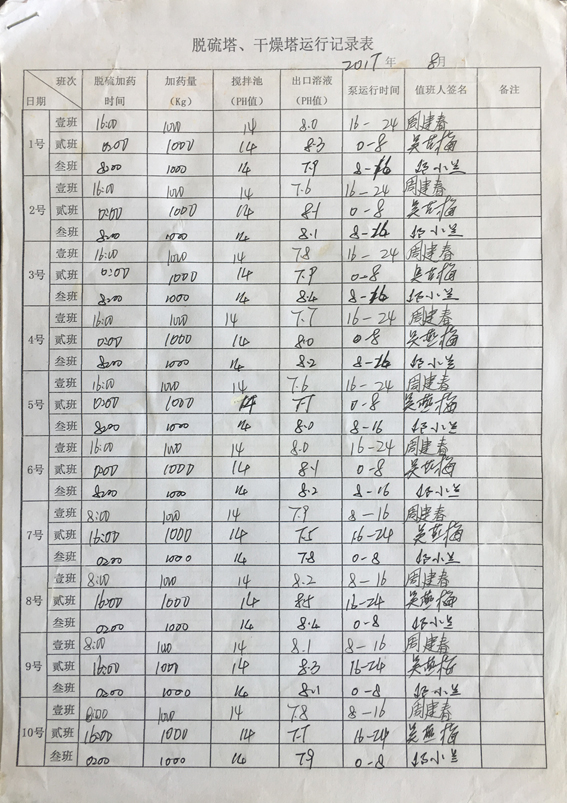 脱硫塔、干燥塔运行记录表
2017年 8月
日期 班次 脱硫加药时间 加药量(Kg) 搅拌池(PH值) 出口溶液(PH值) 泵运行时间 值班人签名 备注
1号 壹班 16:00 1000 14 8.0 16-24 周建春
贰班 0:00 1000 14 8.3 0-8 吴燕梅
叁班 8:00 1000 14 7.9 8-16 小兰
2号 壹班 16:00 1000 14 7.6 16-24 周建春
贰班 0:00 1000 14 8.1 0-8 吴燕梅
叁班 8:00 1000 14 8.1 8-16 小兰
3号 壹班 16:00 1000 14 7.8 16-24 周建春
贰班 0:00 1000 14 7.9 0-8 吴燕梅
叁班 8:00 1000 14 8.4 8-16 小兰
4号 壹班 16:00 1000 14 7.7 16-24 周建春
贰班 0:00 1000 14 8.0 0-8 吴燕梅
叁班 8:00 1000 14 8.2 8-16 小兰
5号 壹班 16:00 1000 14 7.6 16-24 周建春
贰班 0:00 1000 14 0-8 吴燕梅
叁班 8:00 1000 14 8.0 8-16 小兰
6号 壹班 16:00 1000 14 8.0 16-24 周建春
贰班 0:00 1000 14 8.1 0-8 吴燕梅
叁班 8:00 1000 14 8.2 8-16 小兰
7号 壹班 8:00 1000 14 7.9 8-16 周建春
贰班 16:00 1000 14 7.5 16-24 吴燕梅
叁班 0:00 1000 14 7.8 0-8 小兰
8号 壹班 8:00 1000 14 8.2 8-16 周建春
贰班 16:00 1000 14 8.5 16-24 吴燕梅
叁班 0:00 1000 14 8.4 0-8 小兰
9号 壹班 8:00 1000 14 8.1 8-16 周建春
贰班 16:00 1000 14 8.3 16-24 吴燕梅
叁班 0:00 1000 14 8.1 0-8 小兰
10号 壹班 8:00 1000 14 7.8 8-16 周建春
贰班 16:00 1000 14 16-24 吴燕梅
叁班 0:00 1000 14 7.9 0-8 小兰